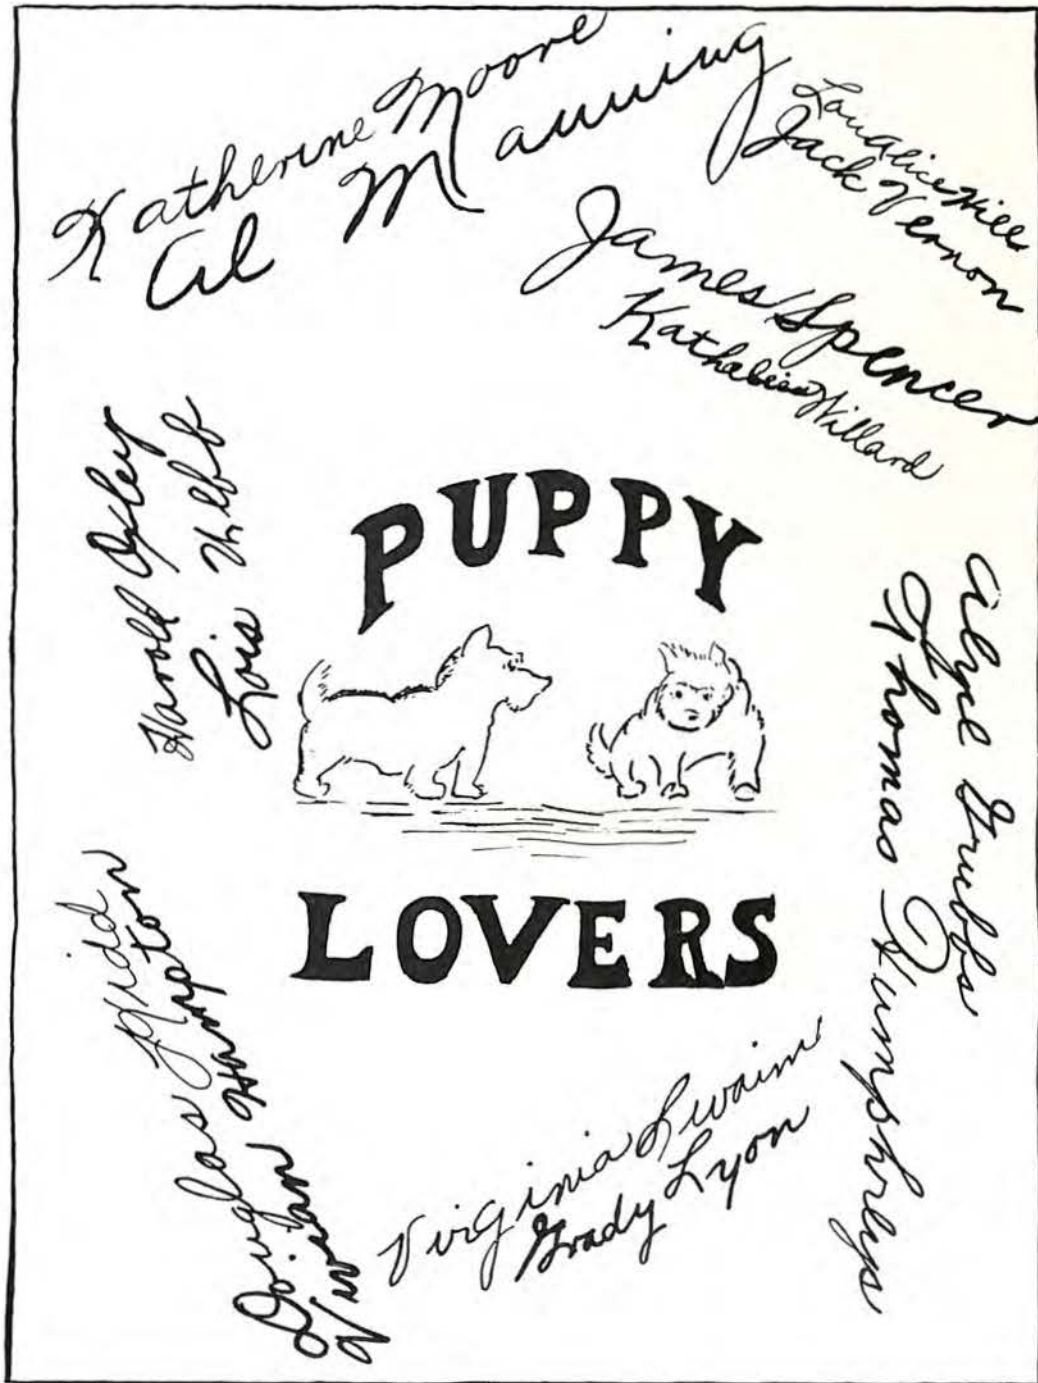 Katherine Moore
Al Manning
Lou Alice Hill
Jack Vernon
James Spencer
Willard
Harold Oxley
Lois Webb
PUPPY
Alyce Grubbs
Thomas Humphreys
LOVERS
Douglas Kidd
Vivian Hampton
Virginia Swaim
Grady Lyon